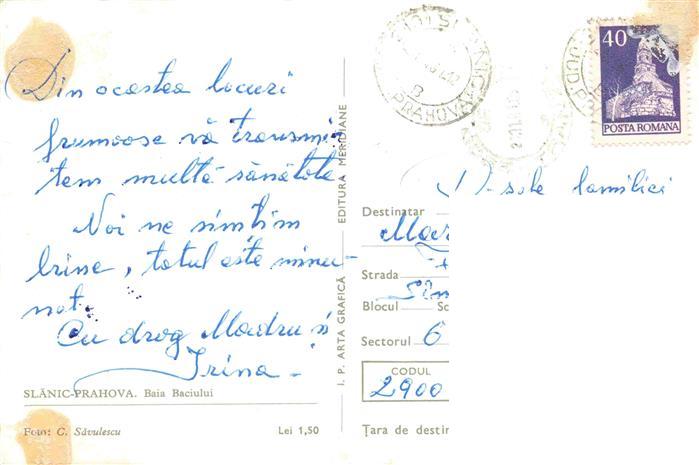 Din acestea locuri
frumoase vă transmi-
tem multă sănătate
Noi ne simțim
bine, totul este minu-
nat.
Cu drag Madru și
Irina
SLĂNIC-PRAHOVA. Baia Baciului
Foto: C. Săvulescu
Lei 1,50
I. P. ARTA GRAFICĂ
EDITURA MERIDIANE
PRAHOVA
B
40
POSTA ROMANA
D-sale familiei
Destinatar
Strada
Blocul
Sectorul 6
CODUL
2900
Țara de destin